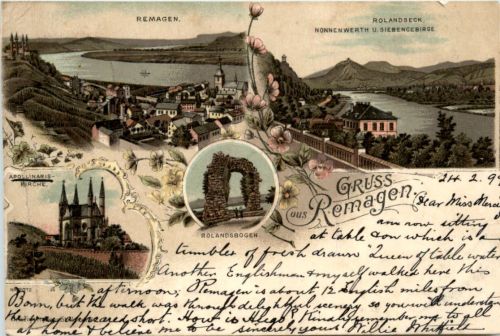 REMAGEN.
ROLANDSECK
NONNENWERTH U. SIEBENGEBIRGE
APOLLINARIS-
KIRCHE.
ROLANDSBOGEN
GRUSS
aus Remagen.
24.2.9
Dear Miss
am now sitting
at table on which is a
tumbler of fresh drawn "Queen of table waters
Another Englishman & myself walked here this
afternoon, Remagen is about 12 English miles from
Bonn, but the walk was through delightful scenery so you will understand
the way appeared short. How is Kindly remember me to all
at home & believe me to be sincerely yours Willie